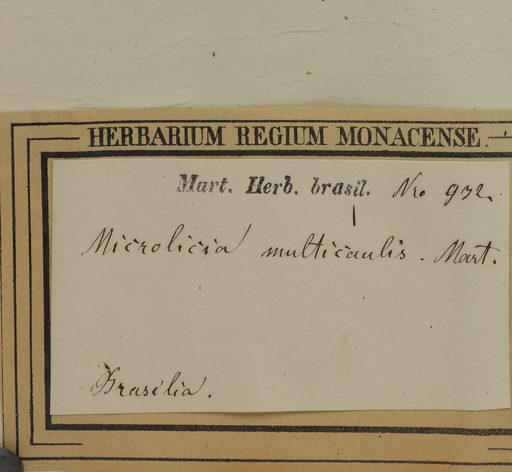 HERBARIUM REGIUM MONACENSE.
Mart. Herb. brasil. Nro 932.
Microlicia multicaulis. Mart.
Brasilia.